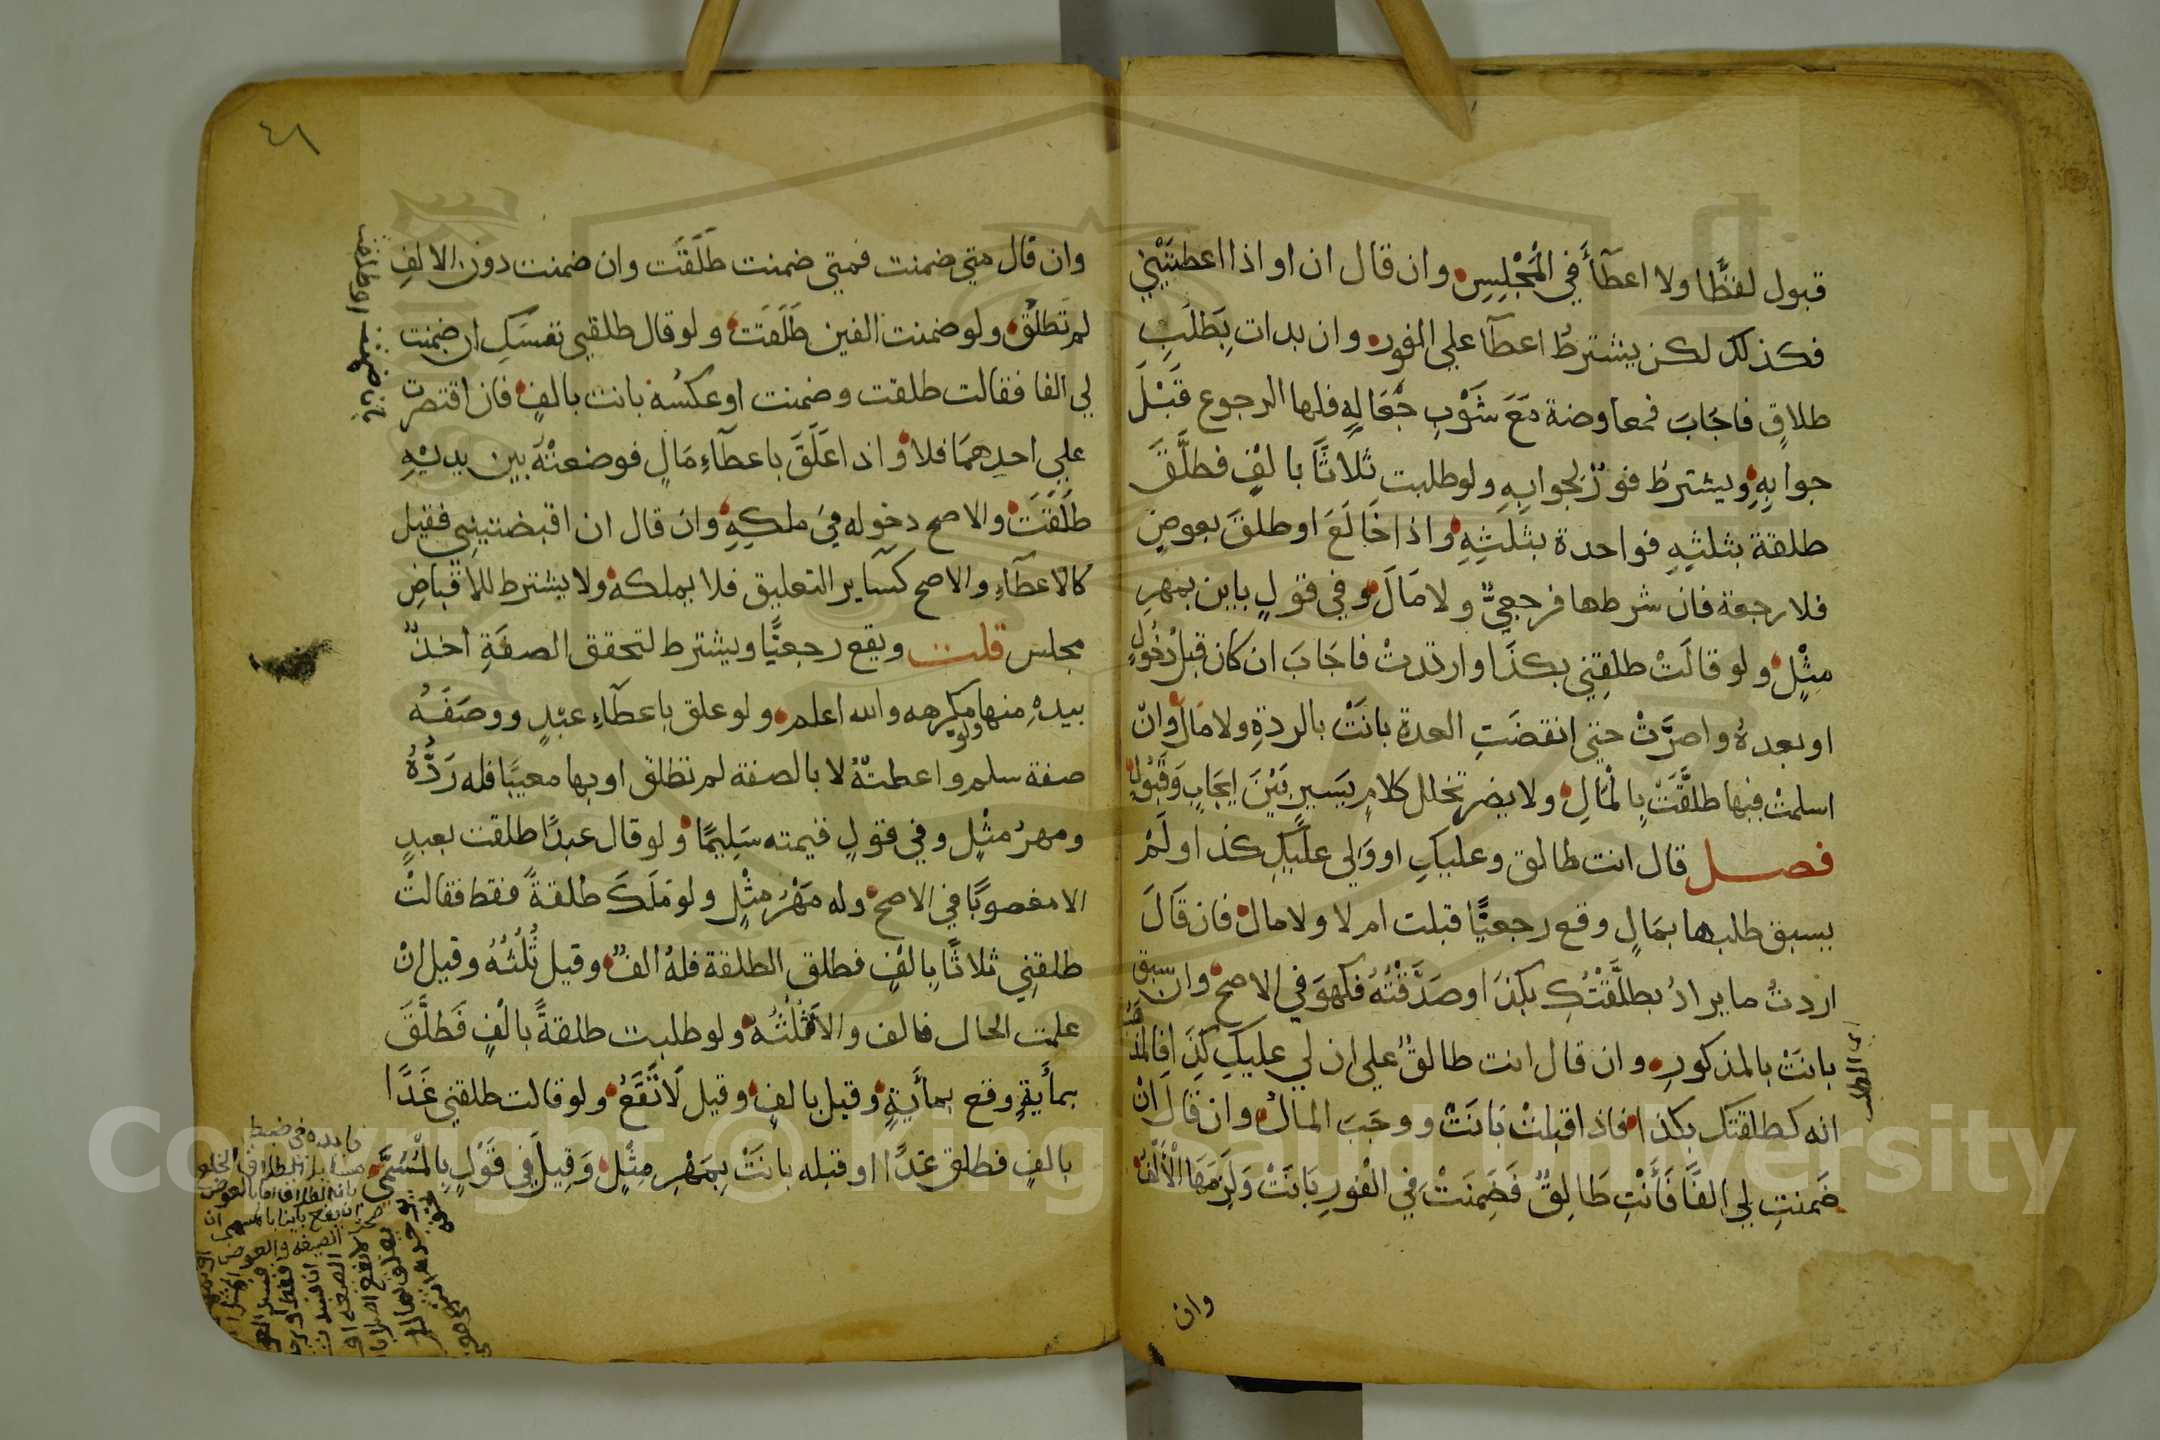 قبول لفظًا ولا اعطآأ في المَجْلِسِ وان قال ان او اذا اعطيتَنِي
فكذلك لكن يشترطُ اعطآ علي الفور وان بدات بِطَلَبِ
طلاقٍ فاجَابَ فمعاوضة مَعَ شَوْبِ جُعَالةٍ فلها الرجوع قَبْلَ
جوابِهِ ويشترطُ فورٌ لجوابِهِ ولو طلبت ثلاثًا بالفٍ فطلَّقَ
طلقة بثلثِهِ فواحدة بثلثِهِ واذا خَالَعَ او طلقَ بعوضٍ
فلا رجعة فان شرطها فرجعيٌّ ولا مَالَ وفي قولٍ باين بمهرِ
مِثْلٍ ولو قالَتْ طلقِني بكذَا وارتدتْ فاجَابَ ان كان قبلَ دُخُولٍ
او بعدهُ واصرَّتْ حتي انقضَتِ العدة بانَتْ بالردةِ ولا مَالَ وانْ
اسلمتْ فيها طلقَّتَ بِالْمَالِ ولا يضر تخلل كلامٍ يَسيرٍ بَيْنَ اِيجَابٍ وَقَبُولٍ
فصل قال انت طالق وعليكِ او وَلِي عليكِ كذا ولَمْ
يسبق طلبها بمَالٍ وقع رجعيًّا قبلت ام لا ولا مال فان قَالَ
اردتُ ما يرادُ بطلَّقْتُكِ بكذَا وصَدَّقَتْهُ فكهوَ في الاصح وان سبق
بانَتْ بالمذكورِ وان قال انت طالقٌ علي ان لي عليكِ كَذَا فالمذهب
انه كطلقتك بكذا فاذا قبلتْ بَانَتْ ووجَبَ المالُ وان قَالَ اِنْ
ضَمنتِ لِي الفًا فَأَنْتِ طَالِقٌ فَضَمِنَتْ فِي الْفَورِ بَانَتْ وَلَزِمَهَا الْأَلْفُ
اي الطلب
وان
٤١
وان قال متي ضمنت فمتي ضمنت طَلَقَت وان ضمنت دون الالفِ
لم تَطلُقْ ولو ضمنت الفين طَلَقَتْ ولو قال طلقي نفسَكِ ان ضمنت
لي الفا فقالت طلقت وضمنت او عكسُه بانت بالفٍ فان اقتصرت
علي احدِهمَا فلا واذا علَقَ باعطآءِ مَالٍ فوضعتْهُ بين يديْهِ
طَلَقَتْ والاصح دخوله في ملكِهِ وان قال ان اقبضتيني فقيل
كالاعطآءِ والاصح كسَايرِ التعليق فلا يملكه ولا يشترط للاقباضِ
مجلس قلت ويقع رجعيًّا ويشترط لتحقق الصفَةِ اخذٌ
بيدهِ منها ولو مكرهه والله اعلم ولو علق باعطآءِ عبْدٍ ووصَفَهُ
صفة سلم واعطتْهُ لا بالصفة لم تطلق او بها معيبًا فله رَدُّهُ
ومهرُ مثْلٍ وفي قولٍ قيمته سَلِيمًا ولو قال عبدًا طلقت بعبدٍ
الا مغصوبًا في الاصح وله مَهْرُ مِثْلٍ ولو مَلَكَ طلقةً فقط فقالتْ
طلقنِي ثلاثًا بِالْفٍ فطلق الطلقة فلهُ الفٌ وقيل ثُلُثُهُ وقيل انْ
علمت الحال فالف والا فَثُلُثُهُ ولو طلبت طلقةً بالْفٍ فَطلَّقَ
بمأيةٍ وقع بمأيَةٍ وقيل بالفٍ وقيل لَا تَقَعُ ولو قالت طلقني غَدًا
بالفٍ فطلق غدًا او قبله بانَتْ بِمَهْرِ مِثْلٍ وَقيلَ فِي قَوْلٍ بِالْمُسَمَّي
فايده في ضبط
مسايل الطلاق في الخلع